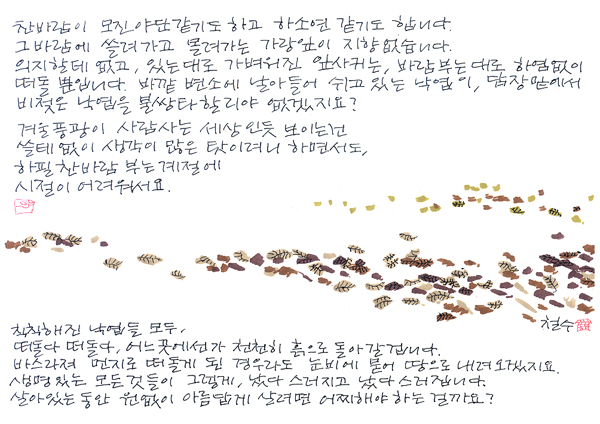 찬바람이 모진 야단같기도 하고 하소연 같기도 합니다.
그 바람에 쓸려가고 몰려가는 가랑잎이 지향없습니다.
의지할데 없고, 있는대로 가벼워진 잎사귀는, 바람부는대로 하염없이
떠돌 뿐입니다. 바깥 변소에 날아들어 쉬고 있는 낙엽이, 담장밑에서
비젖은 낙엽을 불쌍타 할리야 없겠지요?
겨울풍광이 사람사는 세상인듯 보이는건
쓸데없이 생각이 많은 탓이려니 하면서도,
하필 찬바람 부는 계절에
시절이 어려워서요.
철수
착착해진 낙엽들 모두,
떠돌다 떠돌다, 어느곳에선가 천천히 흙으로 돌아갈겁니다.
바스라져 먼지로 떠돌게 된 경우라도 눈비에 붙어 땅으로 내려오겠지요.
생명있는 모든것들이 그렇게, 났다 스러지고 났다 스러집니다.
살아있는동안 원없이 아름답게 살려면 어찌해야 하는 걸까요?